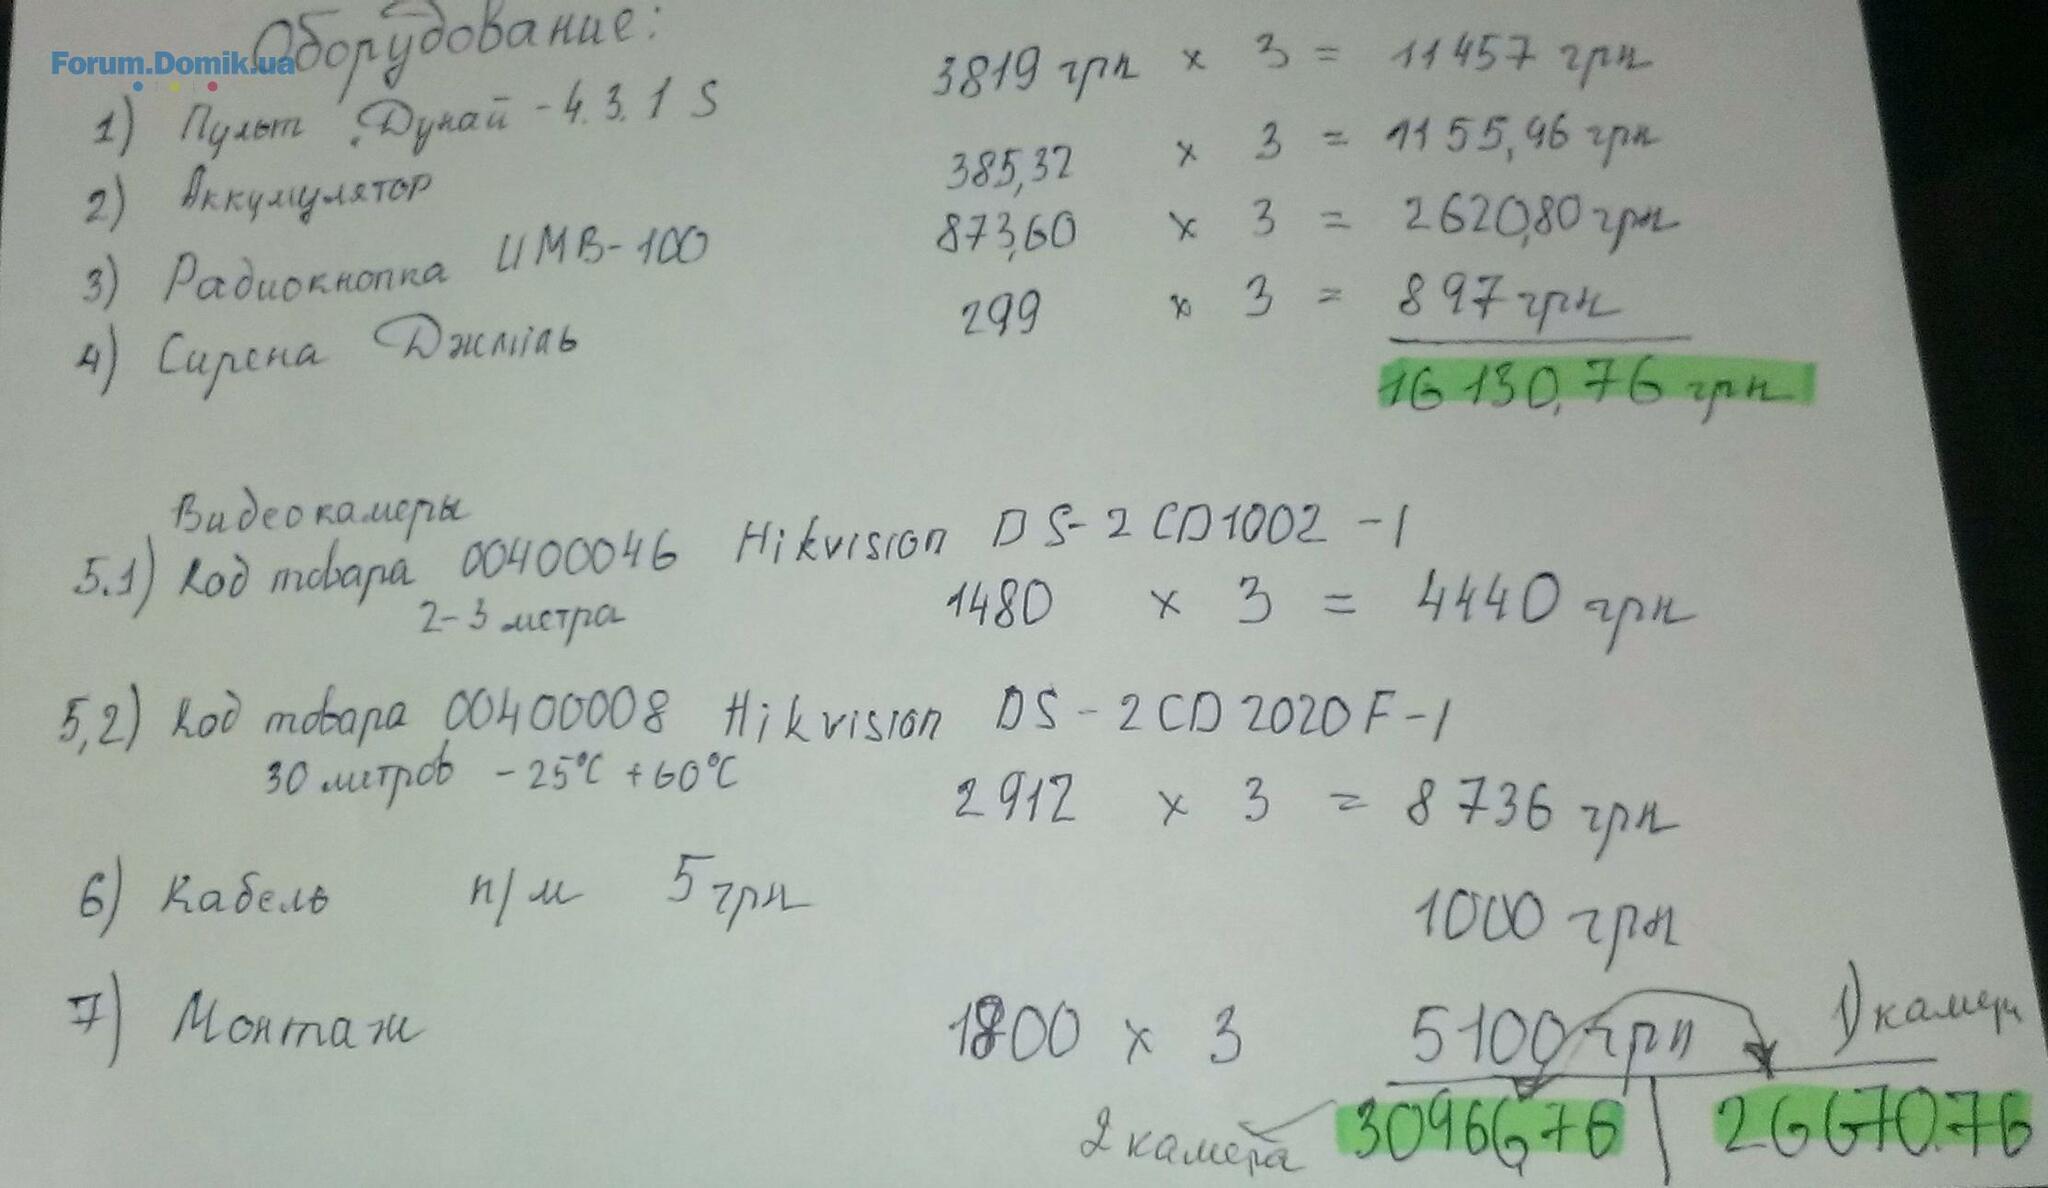 Оборудование:
Forum.Domik.ua
1) Пульт Дунай-4.3.1 S 3819 грн x 3 = 11457 грн
2) Аккумулятор 385,32 x 3 = 1155,96 грн
3) Радиокнопка ИМВ-100 873,60 x 3 = 2620,80 грн
4) Сирена Джміль 299 x 3 = 897 грн
16130,76 грн
Видеокамеры
5.1) Код товара 00400046 Hikvision DS-2CD1002-I
2-3 метра 1480 x 3 = 4440 грн
5,2) Код товара 00400008 Hikvision DS-2CD2020F-I
30 метров -25°C +60°C 2912 x 3 = 8736 грн
6) Кабель п/м 5 грн 1000 грн
7) Монтаж x 3 5100 грн 1) камеры
2 камера 30966,76 26670.76